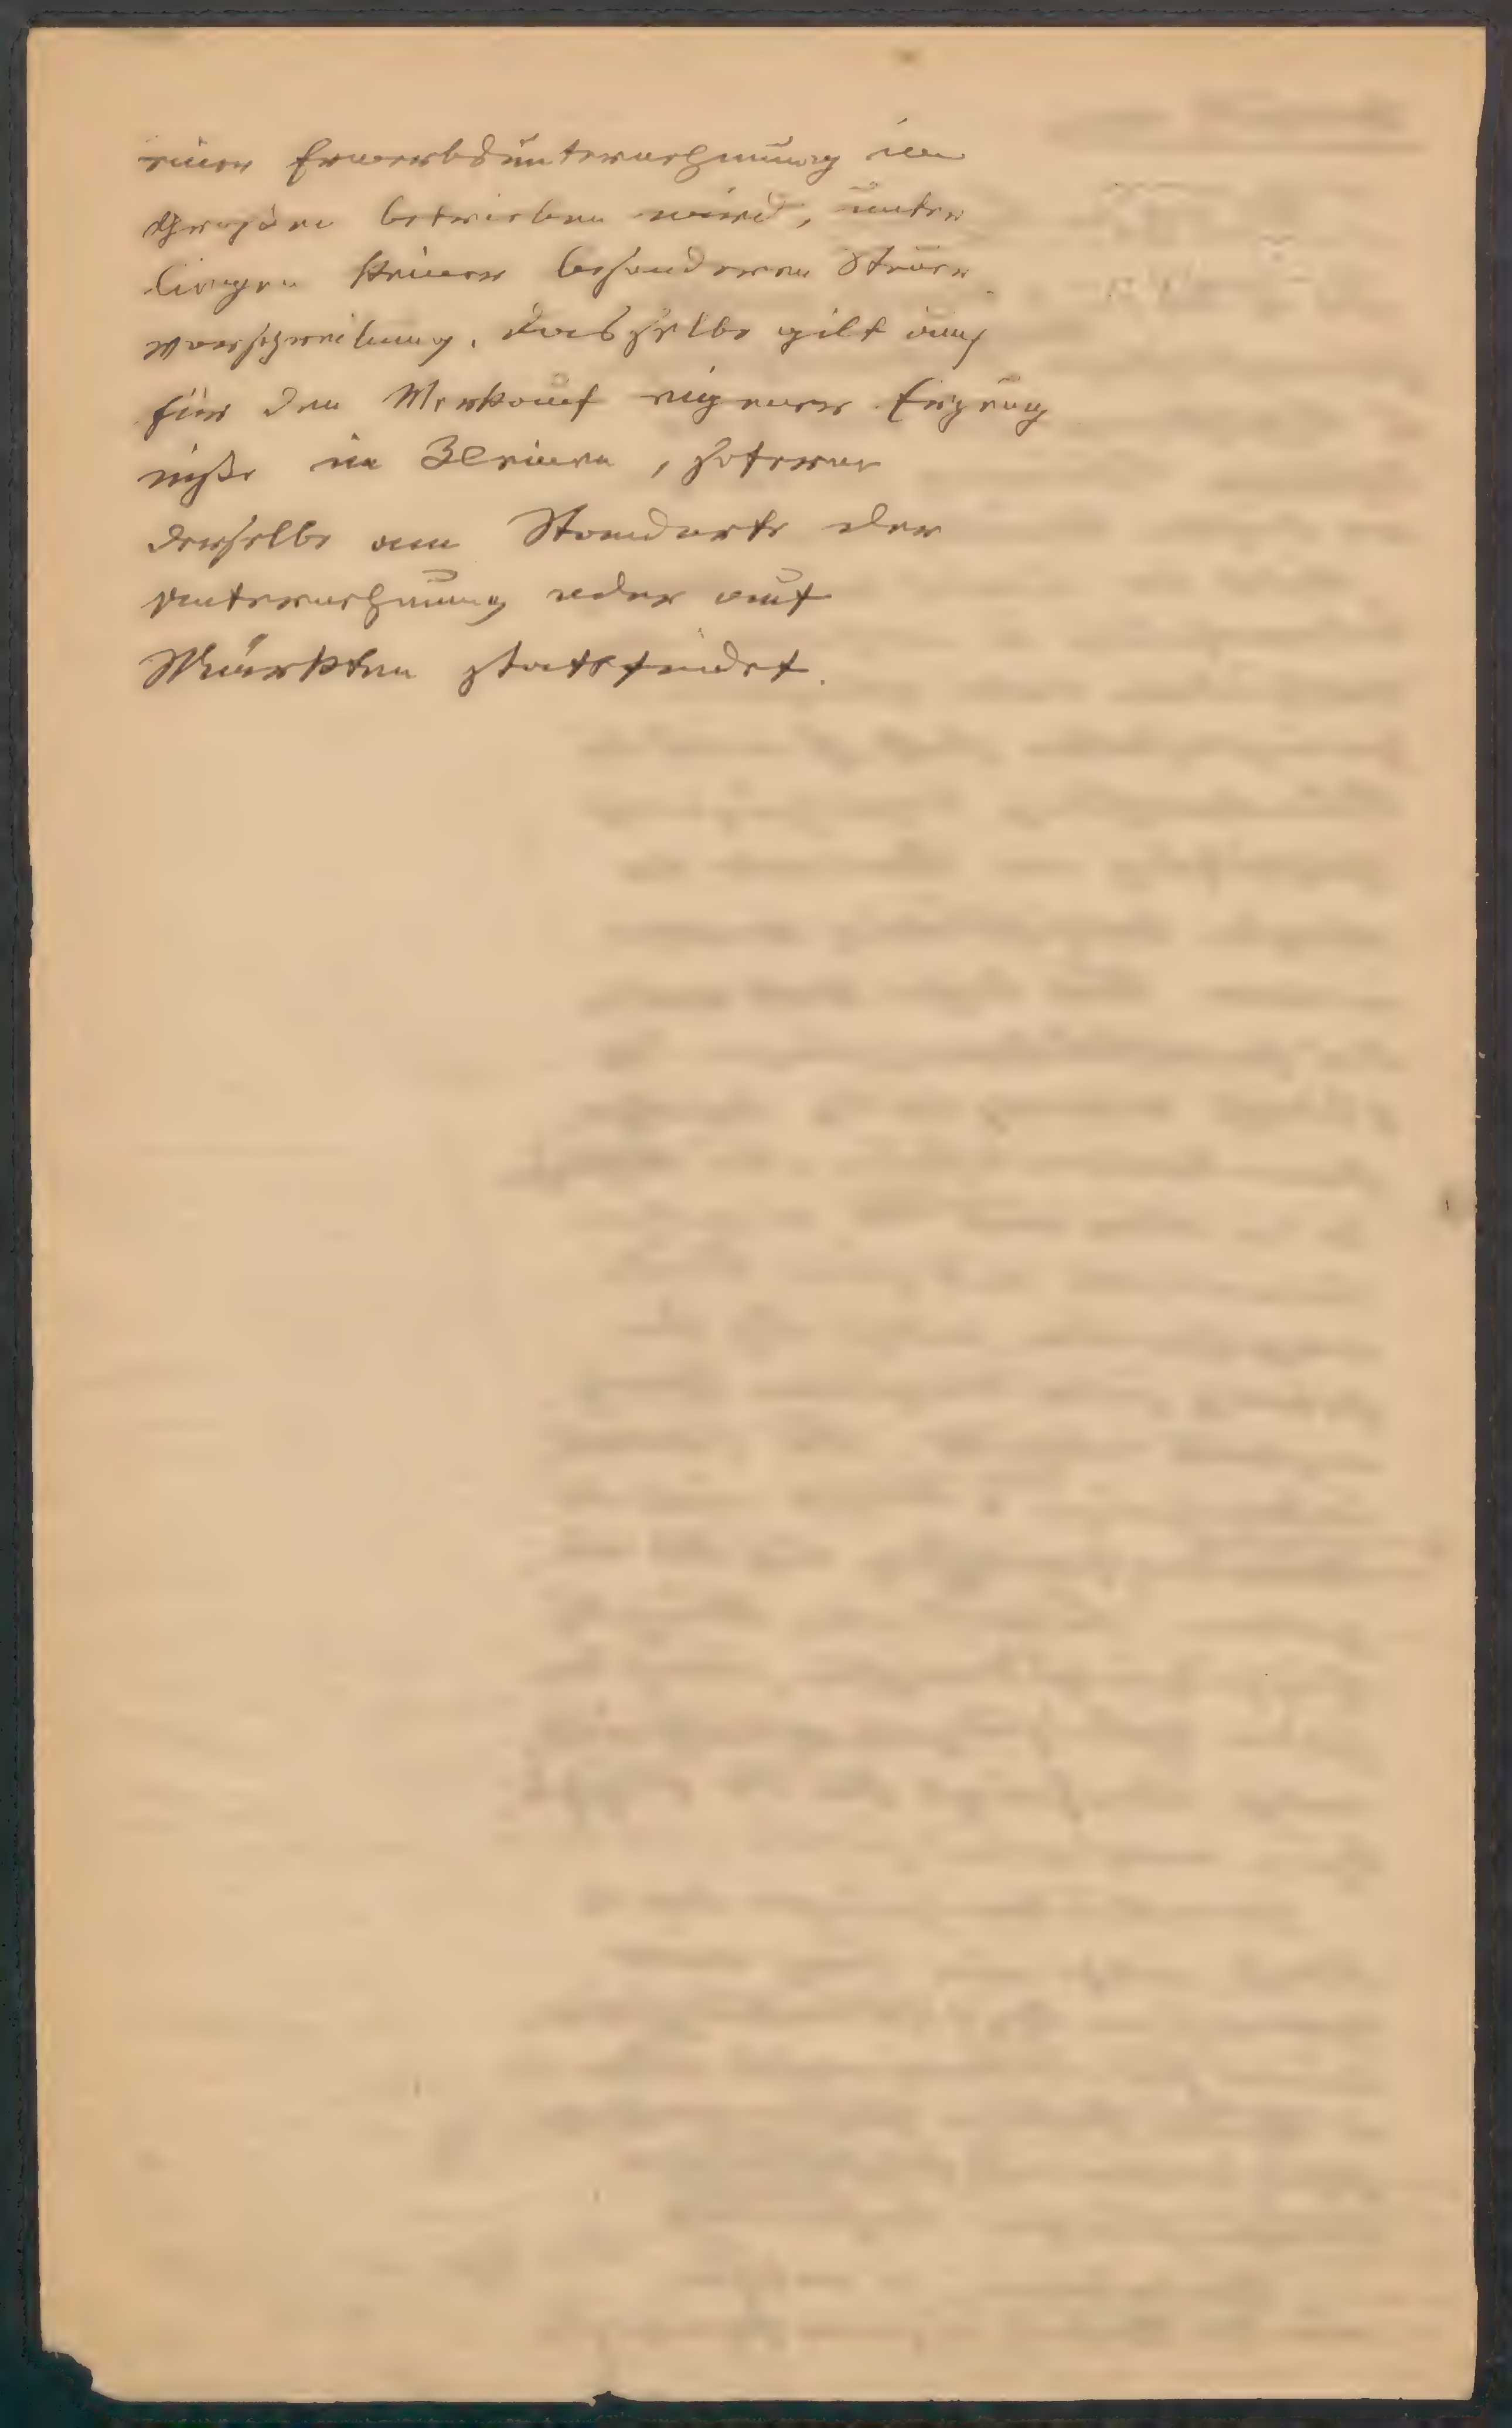 einer Erwerbsunternehmung im
Großen betrieben wird, unter
liegen keiner besonderen Steuer
vorschreibung. Dasselbe gilt auch
für den Verkauf eigener Erzeug
niße im Kleinen, soferne
derselbe am Standorte der
Unternehmung oder auf
Märkten stattfindet.